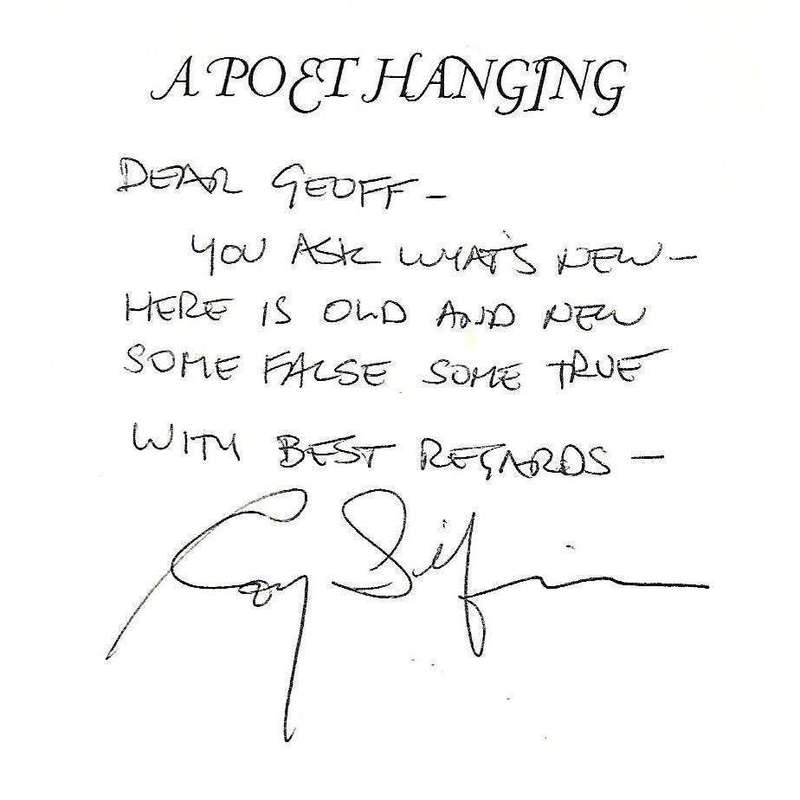 A POET HANGING
DEAR GEOFF –
YOU ASK WHAT'S NEW –
HERE IS OLD AND NEW
SOME FALSE SOME TRUE
WITH BEST REGARDS –